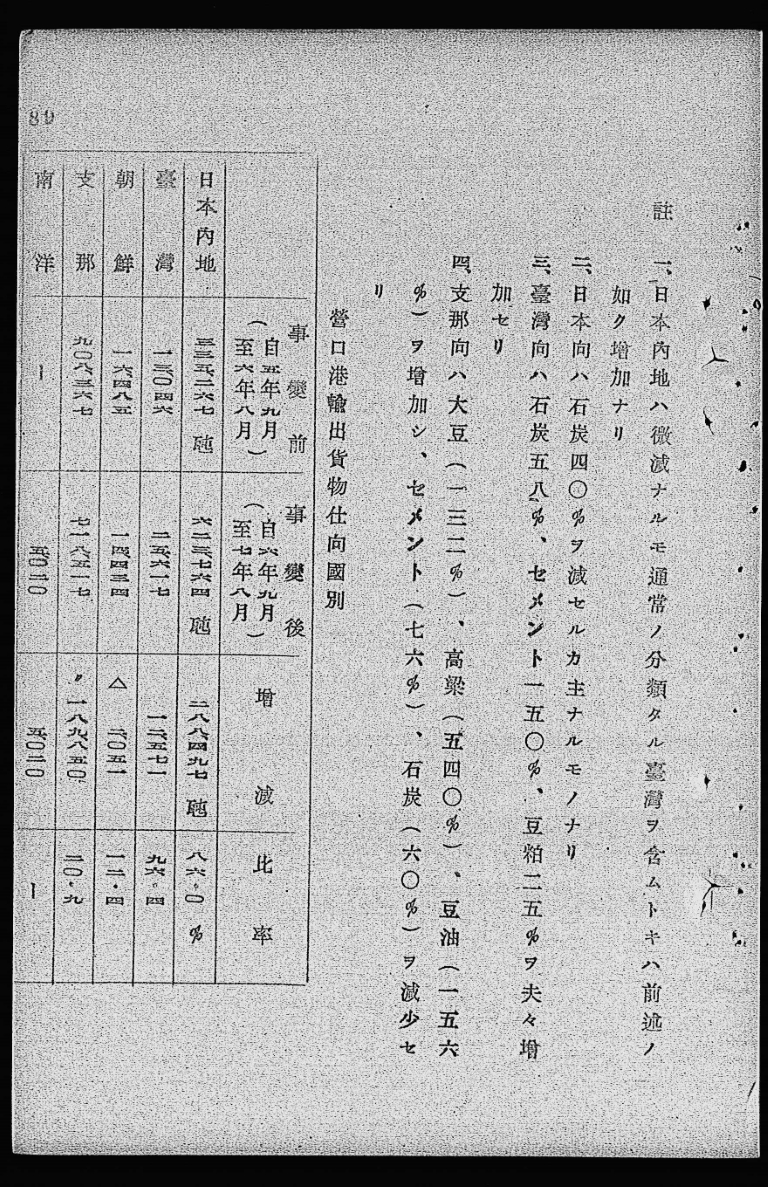 註 一、日本內地ハ微減ナルモ通常ノ分類タル臺灣ヲ含ムトキハ前述ノ
如ク增加ナリ
二、日本向ハ石炭四〇%ヲ減セルカ主ナルモノナリ
三、臺灣向ハ石炭五八%、セメント一五〇%、豆粕二五%ヲ夫々增
加セリ
四、支那向ハ大豆(一三二%)、高梁(五四〇%)、豆油(一五六
%)ヲ增加シ、セメント(七六%)、石炭(六〇%)ヲ減少セ
リ
營口港輸出貨物仕向國別
事變前(自五年九月至六年八月) 事變後(自六年九月至七年八月) 增減 比率
日本內地 三三五二六七砘 六二三七六四砘 二八八四九七砘 八六・〇%
臺灣 一三〇四六 二五六一七 一二五七一 九六・四
朝鮮 一六四八五 一四四三四 △ 二〇五一 一二・四
支那 九〇八三六七 七一八五一七 〃 一八九八五〇 二〇・九
南洋 ー 五〇二〇 五〇二〇 ー
89